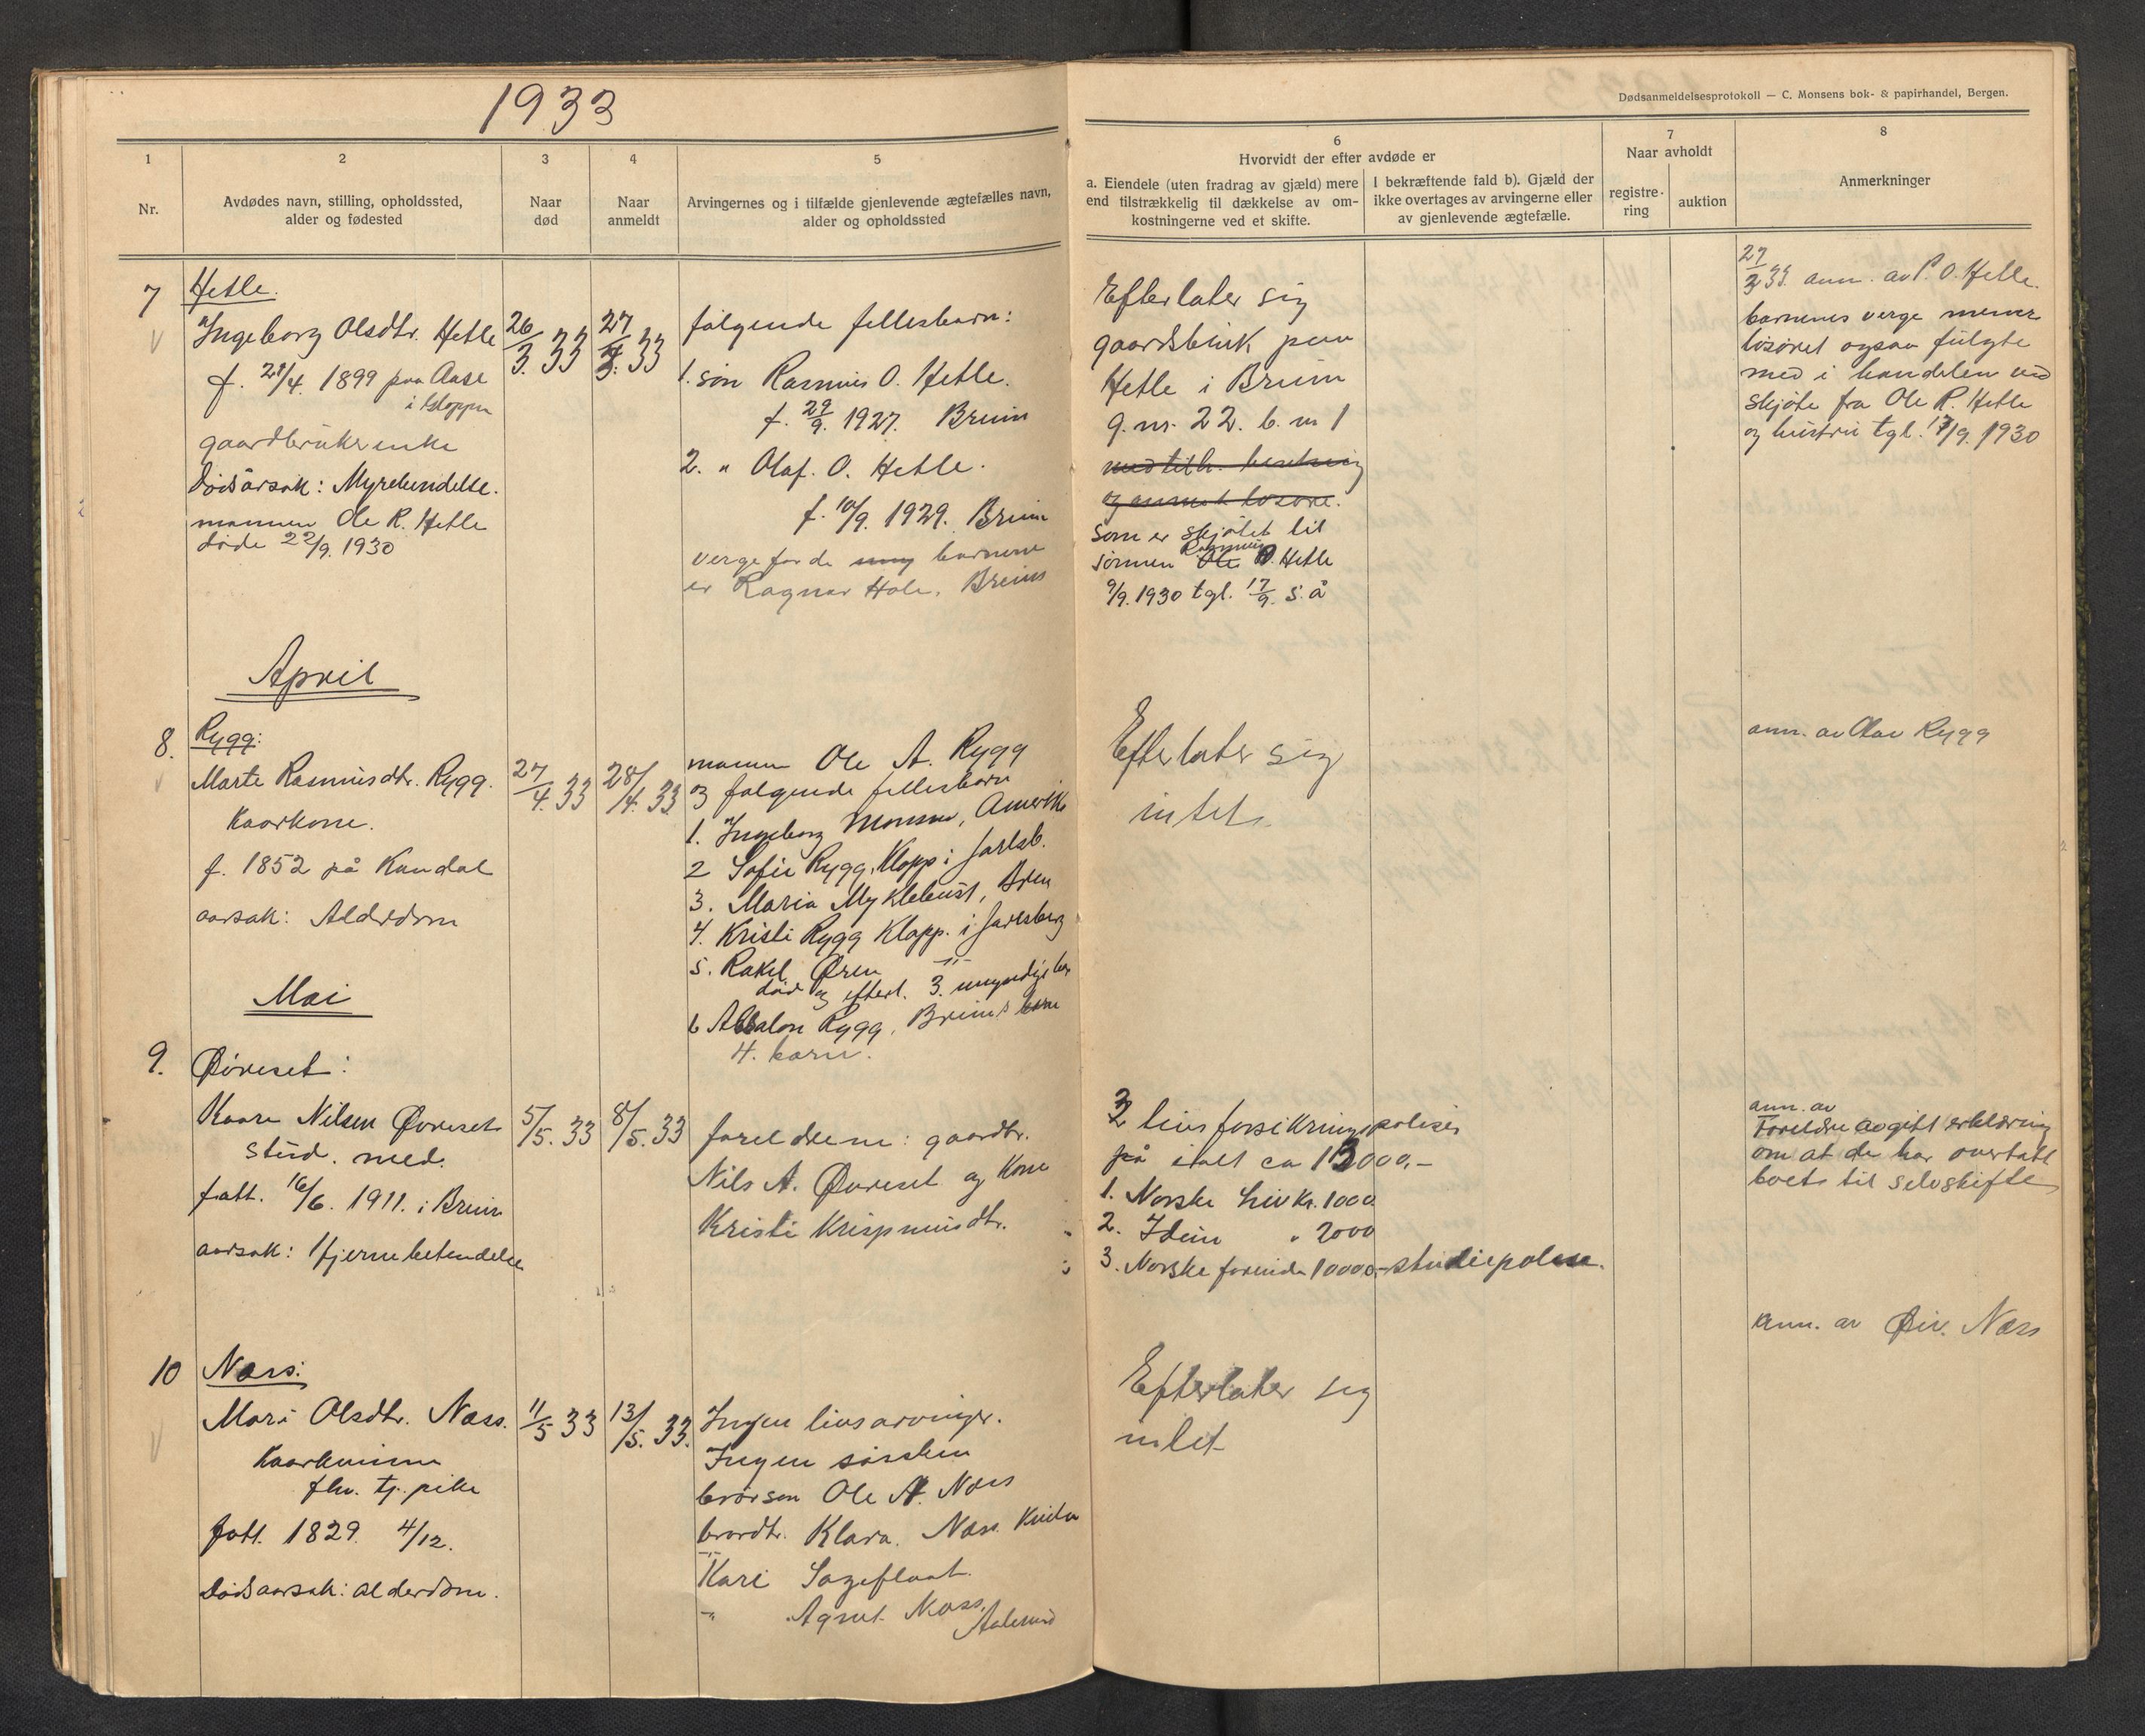 1933
Dødsanmeldelsesprotokoll — C. Monsens bok- & papirhandel, Bergen.
1
Nr.
2
Avdødes navn, stilling, opholdssted,
alder og fødested
3
Naar
død
4
Naar
anmeldt
5
Arvingernes og i tilfælde gjenlevende ægtefælles navn,
alder og opholdssted
6
Hvorvidt der efter avdøde er
a. Eiendele (uten fradrag av gjæld) mere
end tilstrækkelig til dækkelse av om-
kostningerne ved et skifte.
I bekræftende fald b). Gjæld der
ikke overtages av arvingerne eller
av gjenlevende ægtefælle.
7
Naar avholdt
registre-
ring
auktion
8
Anmerkninger
7
Hetle.
Ingeborg Olsdtr. Hetle
f. 28/4. 1899 paa Aase
i Gloppen
gaardbrukerenke
Dødsårsak:
mannen Ole R. Hetle
døde 22/9. 1930
26/3. 33
27/3. 33
følgende fellesbarn:
1. søn Rasmus O. Hetle.
f. 29/9. 1927. Breim
2. " Olaf. O. Hetle.
f. 10/9. 1929. Breim
verge for de barnene
er Ragnar Hole, Breim
Efterlater sig
gaardsbruk paa
Hetle i Breim
g. nr. 22. b. nr 1
med tilh. besetning
og annet løsøre.
som er skjøtet til
sønnen Ole Rasmus O. Hetle
9/9. 1930 tgl. 17/9. s. å
27/3 33. anm. av P. O. Hetle.
barnenes verge mener
løsøret ogsaa fulgte
med i handelen ved
skjøte fra Ole R. Hetle
og hustru tgl. 17/9. 1930
April
8.
Rygg:
Marte Rasmusdtr. Rygg.
Kaarkone.
f. 1852 på Kandal
aarsak: Alderdom
27/4. 33
28/4. 33
mannen Ole A. Rygg
og følgende fellesbarn
1. Ingeborg Monsen, Amerika
2 Sofie Rygg, Klopp i Jarlsb.
3. Maria Myklebust, Breim
4. Kristi Rygg Klopp. i Jarlsberg
5. Rakel Øren -"-
død og efterl. 3. umyndige barn
6 Absalon Rygg, Breims
4. barn.
Efterlater sig
intet.
anm. av Olav Rygg
Mai
9.
Øvreset:
Kaare Nilsen Øvreset
stud. med.
født. 16/6. 1911. i Breim
aarsak: Hjernebetendelse
5/5. 33
8/5. 33
foreldrene: gaardbr.
Nils A. Øvreset og kone
Kristi Krispinusdtr.
3 livsforsikringspoliser
på ialt ca 13000,-
1. Norske Liv Kr. 1000
2. Idun " 2000
3. Norske forenede 10000,- studiepolise.
anm. av
Foreldre avgitt erklæring
om at de har overtatt
boet til selvskifte
10
Næss:
Mari Olsdtr. Næss.
Kaarkvinne
fhv. tj. pike
født. 1829. 4/12.
Dødsaarsak: alderdom.
11/5 33
13/5. 33.
Ingen livsarvinger.
Ingen søsken
brorsøn Ole A. Næss
brordtr. Klara. Næss
-"- Kari Sagefloat.
-"- Agnet Næss, Aalesund
Efterlater sig
intet
anm. av Øiv. Næss